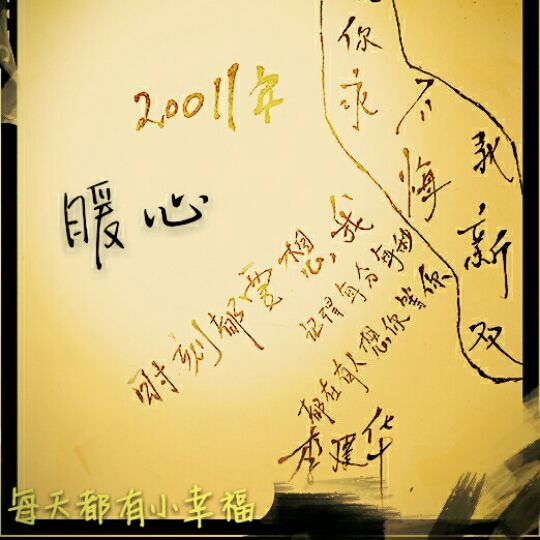 2001年
暖心
你永
不悔
我新双
时刻都要想我
记得每分每秒
都在有人想你等你
李建华
每天都有小幸福